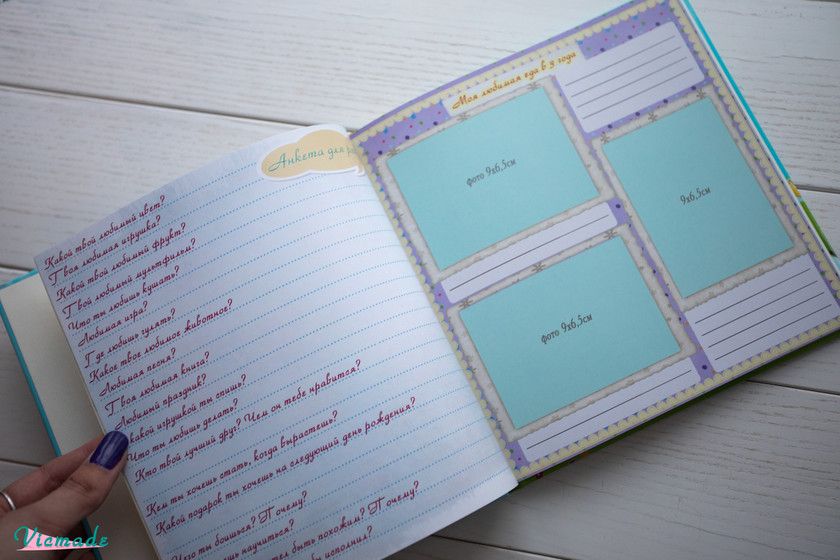 Анкета для
Какой твой любимый цвет?
Твоя любимая игрушка?
Какой твой любимый фрукт?
Твой любимый мультфильм?
Что ты любишь кушать?
Любимая игра?
Где любишь гулять?
Какое твое любимое животное?
Любимая песня?
Твоя любимая книга?
Любимый праздник?
какой игрушкой ты спишь?
Что ты любишь делать?
Кто твой лучший друг? Чем он тебе нравится?
Кем ты хочешь стать, когда вырастешь?
Какой подарок ты хочешь на следующий день рождения?
Что ты боишься? Почему?
научиться?
быть похожим? Почему?
исполнил?
Моя любимая еда в 3 года
фото 9х6,5см
9х6,5см
фото 9х6,5см
Viamade